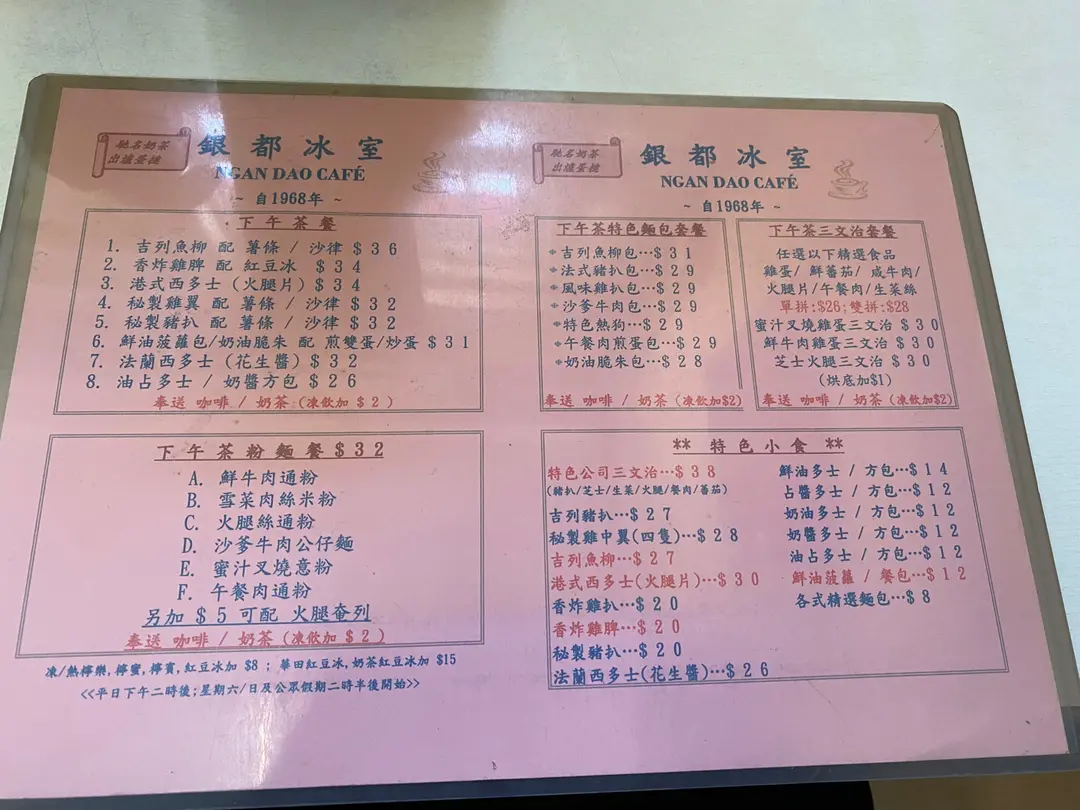 馳名奶茶
出爐蛋撻
銀都冰室
NGAN DAO CAFÉ
~ 自1968年 ~
下午茶餐
1. 吉列魚柳 配 薯條 / 沙律 $36
2. 香炸雞脾 配 紅豆冰 $34
3. 港式西多士 (火腿片) $34
4. 秘製雞翼 配 薯條 / 沙律 $32
5. 秘製豬扒 配 薯條 / 沙律 $32
6. 鮮油菠蘿包/奶油脆朱 配 煎雙蛋/炒蛋 $31
7. 法蘭西多士 (花生醬) $32
8. 油占多士 / 奶醬方包 $26
奉送 咖啡 / 奶茶 (凍飲加 $2)
下午茶粉麵餐 $32
A. 鮮牛肉通粉
B. 雪菜肉絲米粉
C. 火腿絲通粉
D. 沙爹牛肉公仔麵
E. 蜜汁叉燒意粉
F. 午餐肉通粉
另加 $5 可配 火腿奄列
奉送 咖啡 / 奶茶 (凍飲加 $2)
凍/熱檸樂,檸蜜,檸賓,紅豆冰加 $8 ; 華田紅豆冰,奶茶紅豆冰加 $15
<<平日下午二時後;星期六/日及公眾假期二時半後開始>>
馳名奶茶
出爐蛋撻
銀都冰室
NGAN DAO CAFÉ
~ 自1968年 ~
下午茶特色麵包套餐
*吉列魚柳包…$31
*法式豬扒包…$29
*風味雞扒包…$29
*沙爹牛肉包…$29
*特色熱狗…$29
*午餐肉煎蛋包…$29
*奶油脆朱包…$28
奉送 咖啡 / 奶茶 (凍飲加$2)
下午茶三文治套餐
任選以下精選食品
雞蛋/ 鮮蕃茄/ 咸牛肉/
火腿片/午餐肉/生菜絲
單拼:$26;雙拼:$28
蜜汁叉燒雞蛋三文治 $30
鮮牛肉雞蛋三文治 $30
芝士火腿三文治 $30
(烘底加$1)
奉送 咖啡 / 奶茶 (凍飲加$2)
** 特色小食 **
特色公司三文治…$38
(豬扒/芝士/生菜/火腿/餐肉/蕃茄)
吉列豬扒…$27
秘製雞中翼(四隻)…$28
吉列魚柳…$27
港式西多士(火腿片)…$30
香炸雞扒…$20
香炸雞脾…$20
秘製豬扒…$20
法蘭西多士(花生醬)…$26
鮮油多士 / 方包…$14
占醬多士 / 方包…$12
奶油多士 / 方包…$12
奶醬多士 / 方包…$12
油占多士 / 方包…$12
鮮油菠蘿 / 餐包…$12
各式精選麵包…$8